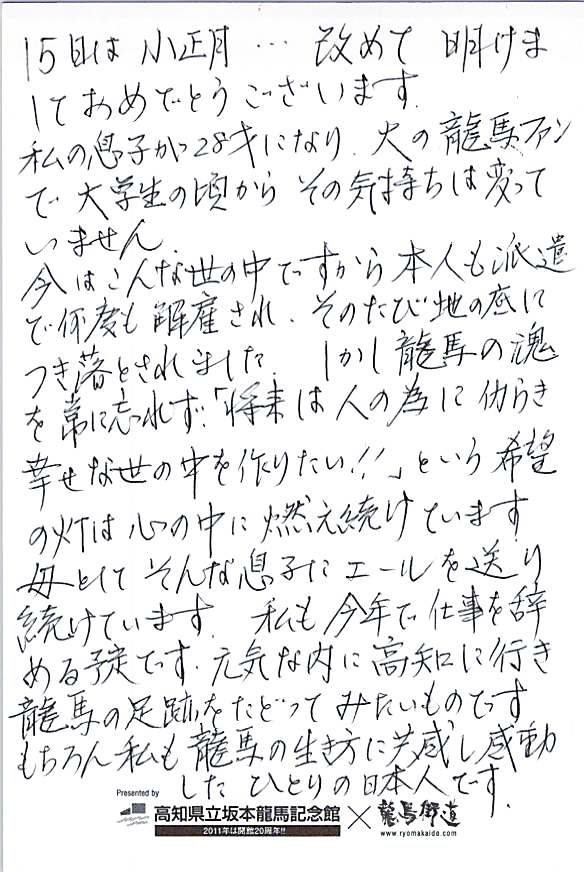 15日は 小正月 … 改めて 明けま
しておめでとうございます.
私の息子が28才になり、大の龍馬ファン
で 大学生の頃から その気持ちは変って
いません.
今はこんな世の中ですから本人も派遣
で何度も解雇され、そのたび地の底に
つき落とされました. しかし龍馬の魂
を常に忘れず、「将来は人の為に仂らき
幸せな世の中を作りたい!!」という希望
の灯は心の中に燃え続けています
母として そんな息子にエールを送り
続けています. 私も今年で仕事を辞
める予定です. 元気な内に高知に行き
龍馬の足跡をたどってみたいものです
もちろん私も龍馬の生き方に共感し感動
した ひとりの日本人です.
Presented by
高知県立坂本龍馬記念館 × 龍馬街道
2011年は開館20周年!! www.ryomakaido.com